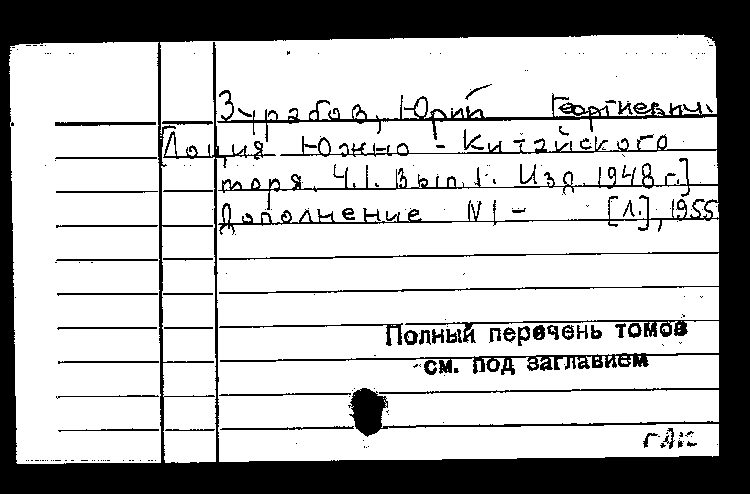 Зурабов, Юрий Георгиевич.
[Лоция Южно-Китайского
моря. Ч.1. Вып.1. Изд. 1948 г.]
Дополнение N1- [Л.], 1955
Полный перечень томов
см. под заглавием
гАк